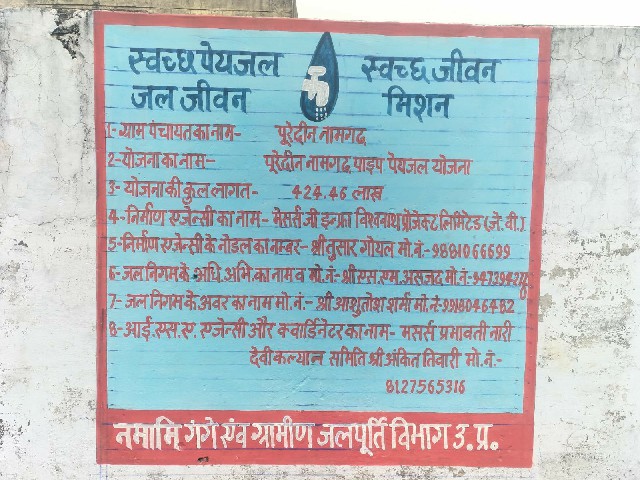 स्वच्छ पेयजल स्वच्छ जीवन
जल जीवन मिशन
1- ग्राम पंचायत का नाम- पूरेदीन नामगढ
2- योजना का नाम- पूरेदीन नामगढ पाइप पेयजल योजना
3- योजना की कुल लागत- 424.46 लाख
4- निर्माण एजेन्सी का नाम- मेसर्स जी इन्फ्रा विश्वनाथ प्रोजेक्ट लिमिटेड (जे. वी.)
5- निर्माण एजेन्सी के नोडल का नम्बर- श्री तुसार गोयल मो.नं.- 9881066699
6- जल निगम के अधि. अभि. का नाम व मो.नं- श्री एस. एम. असजद मो.नं-
7- जल निगम के अवर का नाम मो. नं.- श्री आशुतोश शर्मा मो.नं- 9918046482
8- आई. एस. ए. एजेन्सी और क्वार्डिनेटर का नाम- मसर्स प्रभावती नारी
देवी कल्यान समिति श्री अंकित तिवारी मो. नं.-
8127565316
नमामि गंगे एंव ग्रामीण जलपूर्ति विभाग उ. प्र.